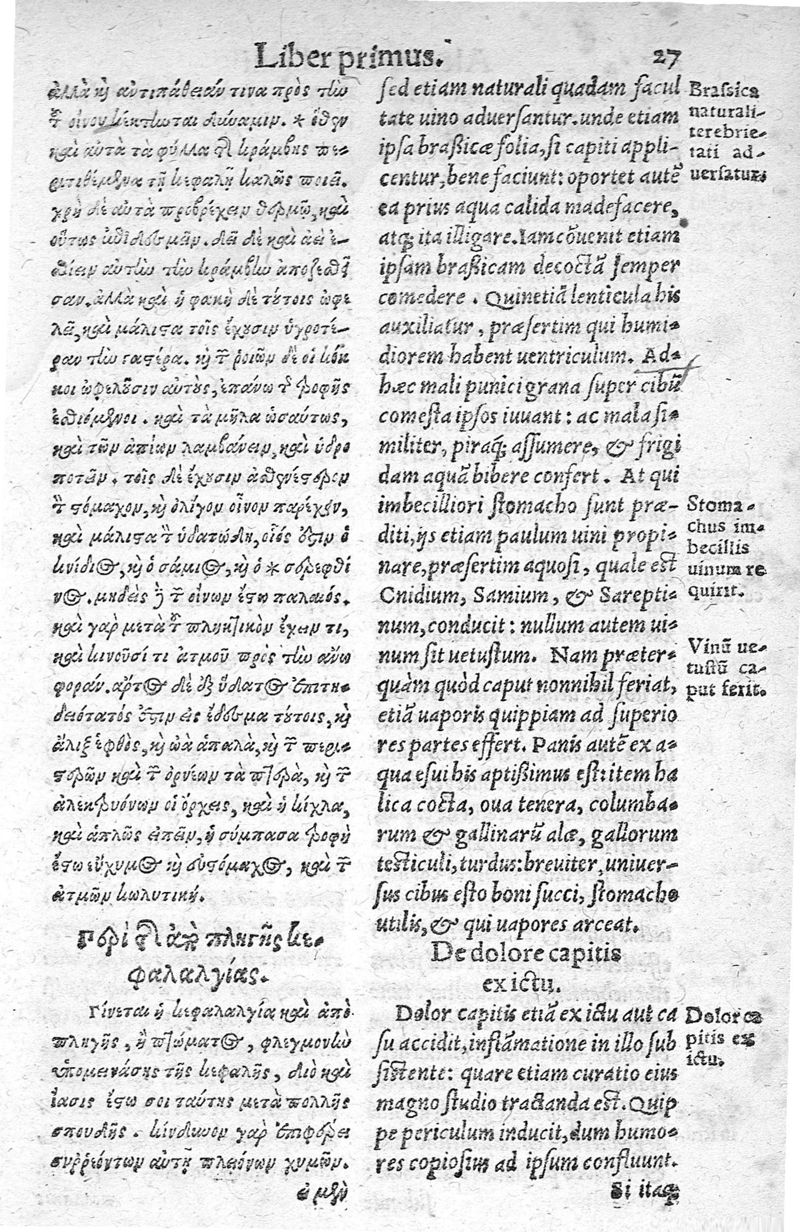 Liber primus. 27
ἀλλὰ κỳ ἀντιπάθειάν τινα πρὸς τὴν
τ̃ οἴνου κέκτηνται δύναμιν. * ὅθεν
καὶ αὐτὰ τὰ φύλλα τῆς κράμβης πε-
ριτιθέμενα τῇ κεφαλῇ καλῶς ποιεῖ.
χρὴ δὲ αὐτὰ προβρέχειν θερμῷ, καὶ
οὕτως ἐπιδεσμεῖν. δεῖ δὲ καὶ ἀεὶ ἐ-
σθίειν αὐτὴν τὴν κράμβην ἀποζεσθεῖ
σαν. ἀλλὰ καὶ ἡ φακῆ δὲ τούτοις ὠφε
λεῖ, καὶ μάλιστα τοῖς ἔχουσιν ὑγροτέ-
ραν τὴν γαστέρα. κỳ τ̃ ῥοιῶν δὲ οἱ κόκ
κοι ὠφελοῦσιν αὐτοὺς, ἐπάνω τ̃ τροφῆς
ἐσθιόμενοι. καὶ τὰ μῆλα ὡσαύτως,
καὶ τῶν ἀπίων λαμβάνειν, καὶ ὑδρο
ποτεῖν. τοῖς δὲ ἔχουσιν ἀσθενέστερον
τ̀ στόμαχον, κỳ ὀλίγον οἶνον παρέχειν,
καὶ μάλιστα τ̀ ὑδατώδη, οἷός ἐστιν ὁ
κνίδιος, κỳ ὁ σάμιος, κỳ ὁ * σαρεφθι
νος. μηδεὶς ἢ τ̃ οἴνων ἔστω παλαιός.
καὶ γὰρ μετὰ τ̃ πληκτικὸν ἔχειν τι,
καὶ κινοῦσί τι ἀτμοῦ πρὸς τὴν ἄνω
φοράν. ἄρτος δὲ ἐξ ὕδατος ἐπιτη-
δειότατός ἐστιν εἰς ἔδεσμα τούτοις, κỳ
ἄλιξ ἑφθὸς, κỳ ὠὰ ἁπαλὰ, κỳ τ̃ περι-
στερῶν καὶ τ̃ ὀρνέων τὰ πτερὰ, κỳ τ̃
ἀλεκτρυόνων οἱ ὄρχεις, καὶ ἡ κίχλα,
καὶ ἁπλῶς εἰπεῖν, ἡ σύμπασα τροφὴ
ἔστω εὔχυμος κỳ εὐστόμαχος, καὶ τ̃
ἀτμῶν κωλυτική.
Περὶ τῆς ἀπὸ πληγῆς κε-
φαλαλγίας.
Γίνεται ἡ κεφαλαλγία καὶ ἀπὸ
πληγῆς, ἢ πτώματος, φλεγμονὴν
ὑπομεινάσης τῆς κεφαλῆς, διὸ καὶ
ἴασις ἔστω σοι ταύτης μετὰ πολλῆς
σπουδῆς. κίνδυνον γὰρ ἐπιφέρει
συῤῥεόντων αὐτῇ πλειόνων χυμῶν.
ὁ μὲν
sed etiam naturali quadam facul
tate uino aduersantur. unde etiam
ipsa braßicæ folia, si capiti appli-
centur, bene faciunt: oportet autẽ
ea prius aqua calida madefacere,
atq; ita illigare. Iam cõuenit etiam
ipsam braßicam decoctã semper
comedere. Quinetiã lenticula his
auxiliatur, præsertim qui humi-
diorem habent uentriculum. Ad-
hæc mali punici grana super cibũ
comesta ipsos iuuant: ac mala si-
militer, piraq; assumere, & frigi
dam aquã bibere confert. At qui
imbecilliori stomacho sunt præ-
diti, ijs etiam paulum uini propi-
nare, præsertim aquosi, quale est
Cnidium, Samium, & Sarepti-
num, conducit: nullum autem ui-
num sit uetustum. Nam præter-
quàm quòd caput nonnihil feriat,
etiã uaporis quippiam ad superio
res partes effert. Panis autẽ ex a-
qua esui his aptißimus est: item ha
lica cocta, oua tenera, columba-
rum & gallinarũ alæ, gallorum
testiculi, turdus: breuiter, uniuer-
sus cibus esto boni succi, stomacho
utilis, & qui uapores arceat.
De dolore capitis
ex ictu.
Dolor capitis etiã ex ictu aut ca
su accidit, inflãmatione in illo sub
sistente: quare etiam curatio eius
magno studio tractanda est. Quip
pe periculum inducit, dum humo-
res copiosius ad ipsum confluunt.
Si itaq;
Braſsica
naturali-
ter ebrie-
tati ad-
uersatur.
Stoma-
chus im-
becillis
uinum re
quirit.
Vinũ ue-
tustũ ca-
put ferit.
Dolor ca
pitis ex
ictu.